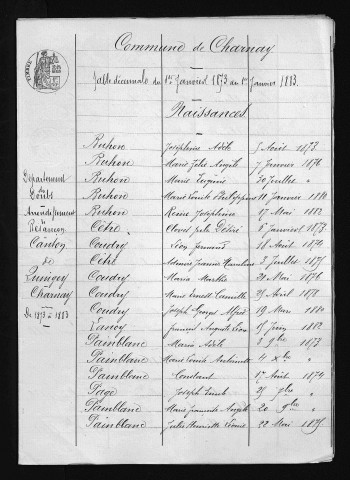 Commune de Charnay
Table décennale du 1er Janvier 1873 au 1er Janvier 1883.
Naissances
Département
du
Doubs
Arrondissement
de
Besançon
Canton
de
Quingey
Charnay
De 1873 à 1883
Ruhon Joséphine Adèle 5 Août 1873
Ruhon Marie Julie Angèle 7 Janvier 1876
Ruhon Marie 30 Juillet "
Ruhon Marie Louise Philippine 11 Janvier 1880
Ruhon Reine Joséphine 17 Mai 1882
Côte Clovis Jules Désiré 6 Janvier 1873
Coudry Léon Armand 18 Août 1874
Côte 3 Juillet 1875
Coudry Marie Marthe 20 Mai 1876
Coudry Marie Camille 25 Avril 1878
Coudry Joseph Georges Alfred 19 Mars 1880
Lanoy Auguste Léon 1882
Painblanc Marie Adèle 1873
Painblanc Marie Louise Antoinette 4 Xbre "
Painblanc Constant 1er Août 1874
Pagé Joseph 9bre "
Painblanc Marie Jeanne Angèle 20 9bre "
Painblanc Jules Henriette 22 Mai 1875